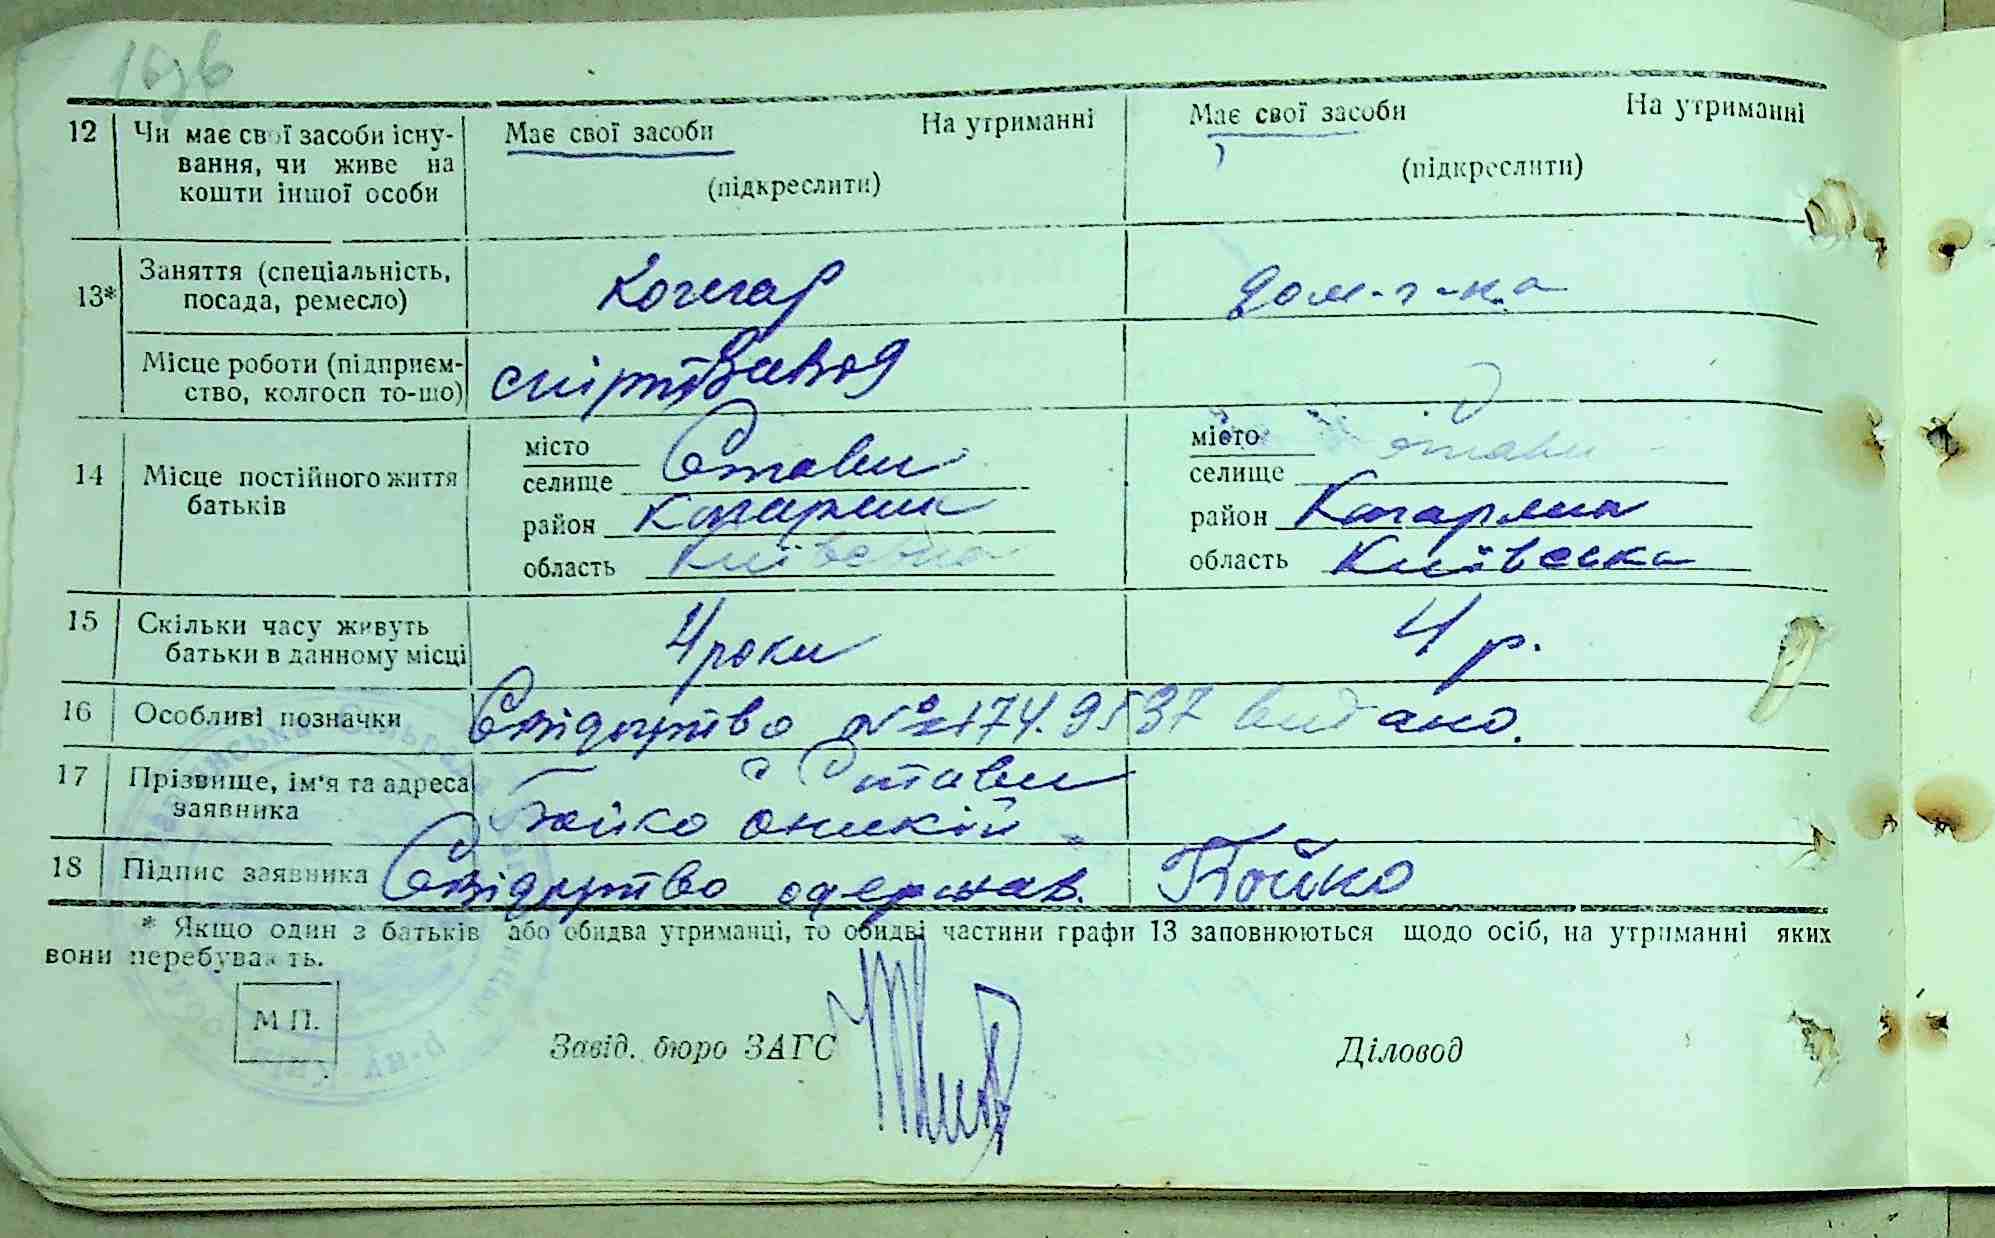 16зв
12 Чи має свої засоби існу- Має свої засоби На утриманні Має свої засоби На утриманні
вання, чи живе на (підкреслити) (підкреслити)
кошти іншої особи
13* Заняття (спеціальність, Кочегар дом-г-ка
посада, ремесло)
Місце роботи (підприєм- спіртзавод
ство, колгосп то-що)
14 Місце постійного життя місто Стави місто Стави
батьків селище селище
район Кагарлик район Кагарлик
область Київська область Київська
15 Скільки часу живуть 4 роки 4 р.
батьки в данному місці
16 Особливі позначки Свідоцтво № видано.
17 Прізвище, ім'я та адреса с Стави
заявника Бойко Оникій
18 Підпис заявника Свідоцтво одержав. Бойко
* Якщо один з батьків або обидва утриманці, то обидві частини графи 13 заповнюються щодо осіб, на утриманні яких
вони перебувають.
М П.
Завід. бюро ЗАГС Діловод